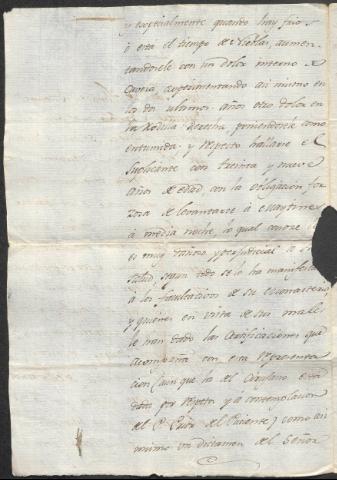 y especialmente quando hay frio
o esta el tiempo de Nieblas, aumen-
tandosele con un dolor interno de
Caveza, experimentando asi mismo en
los dos ultimos años otro dolor en
la Rodilla derecha, poniendosele como
entumida, y respecto hallarse el
Suplicante con treinta y nueve
años de edad con la obligacion for-
zosa de levantarse á Maytines
á media noche, lo qual conoce
es muy dañoso y perjudicial á su
salud, segun todo se lo ha manifestado
á los facultativos de su Monasterio,
y quienes en vista de sus males
le han dado las Certificaciones que
acompaña con esta Representa
cion (aun que la del Cirujano está
dada por respeto y a contemplacion
del P. del Paciente) como asi
mismo un dictamen del Señor